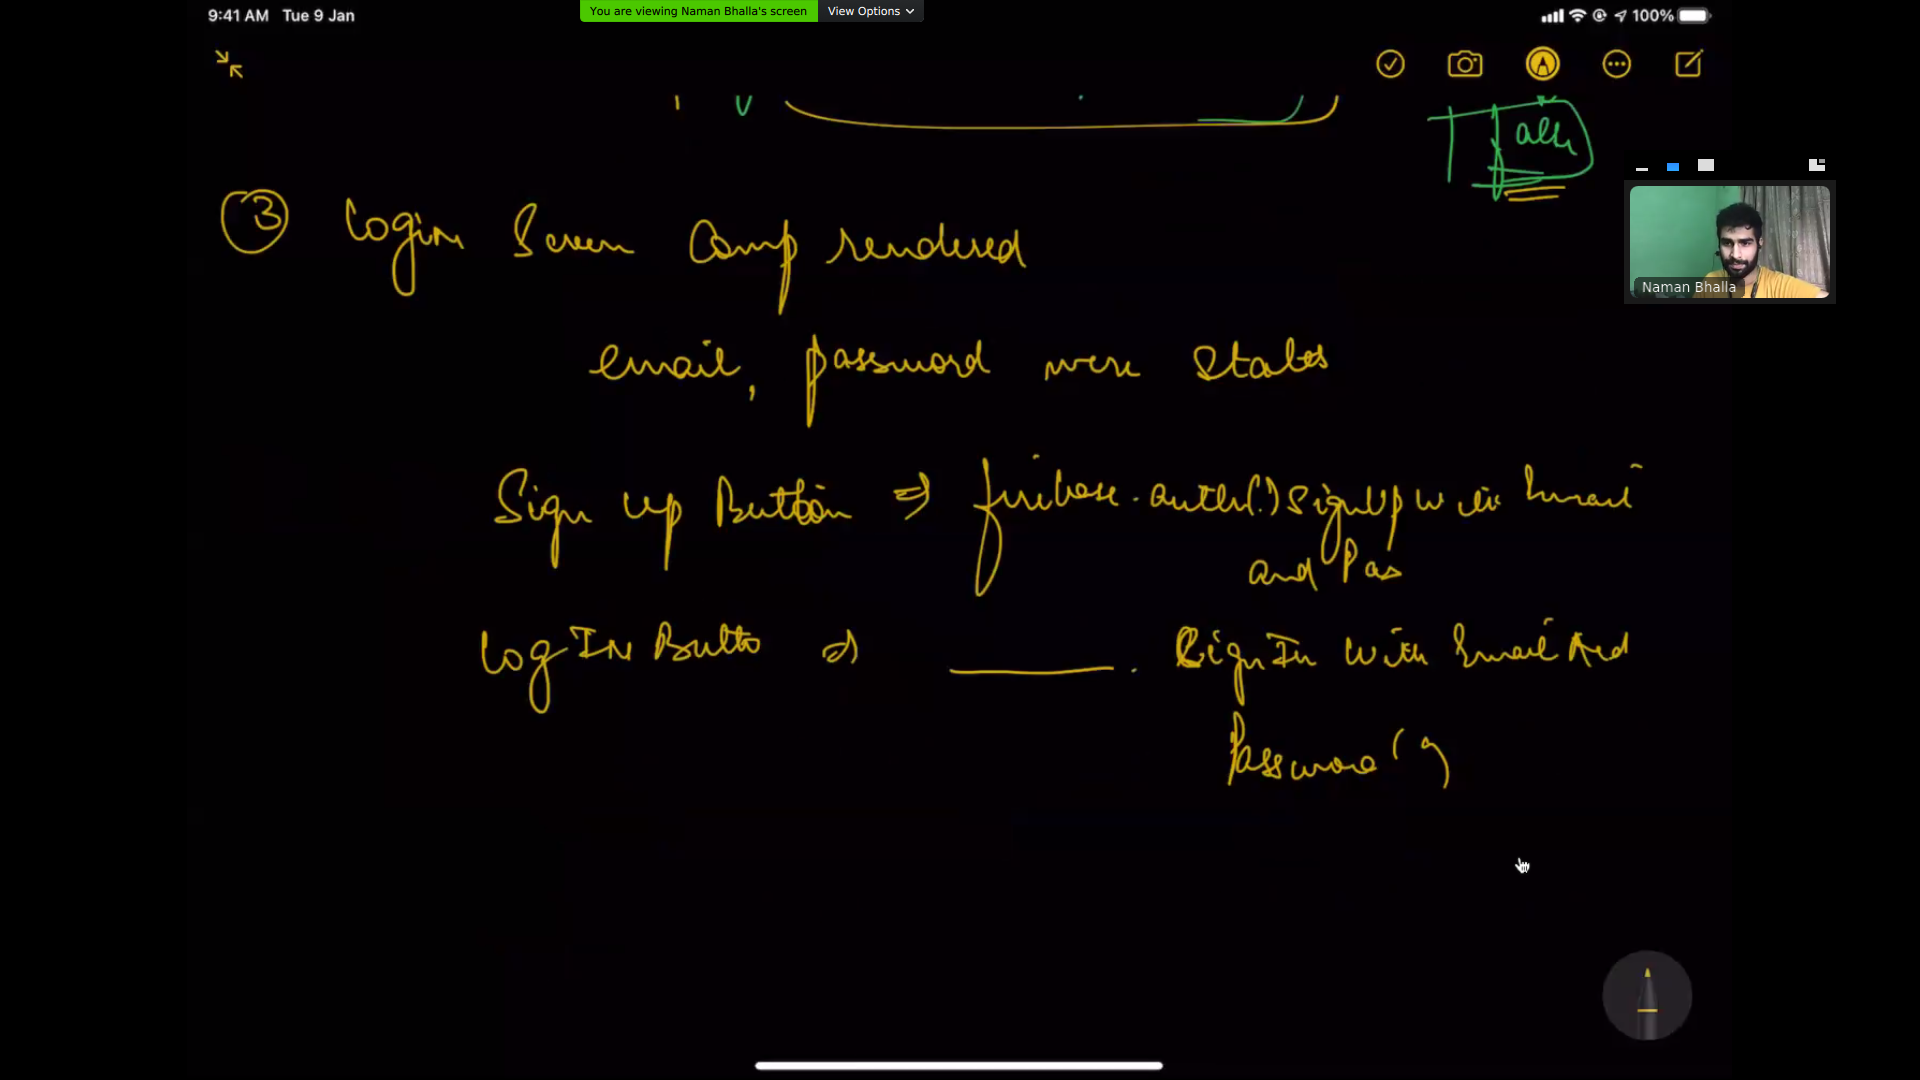 9:41 AM Tue 9 Jan
You are viewing Naman Bhalla's screen View Options
100%
③ Login Screen Comp rendered
Naman Bhalla
email, password were states
Sign up Button ⇒ firebase.auth().SignUpWith Email
and Pas
Log In Butto ⇒ ______. SignIn With Email And
Password()